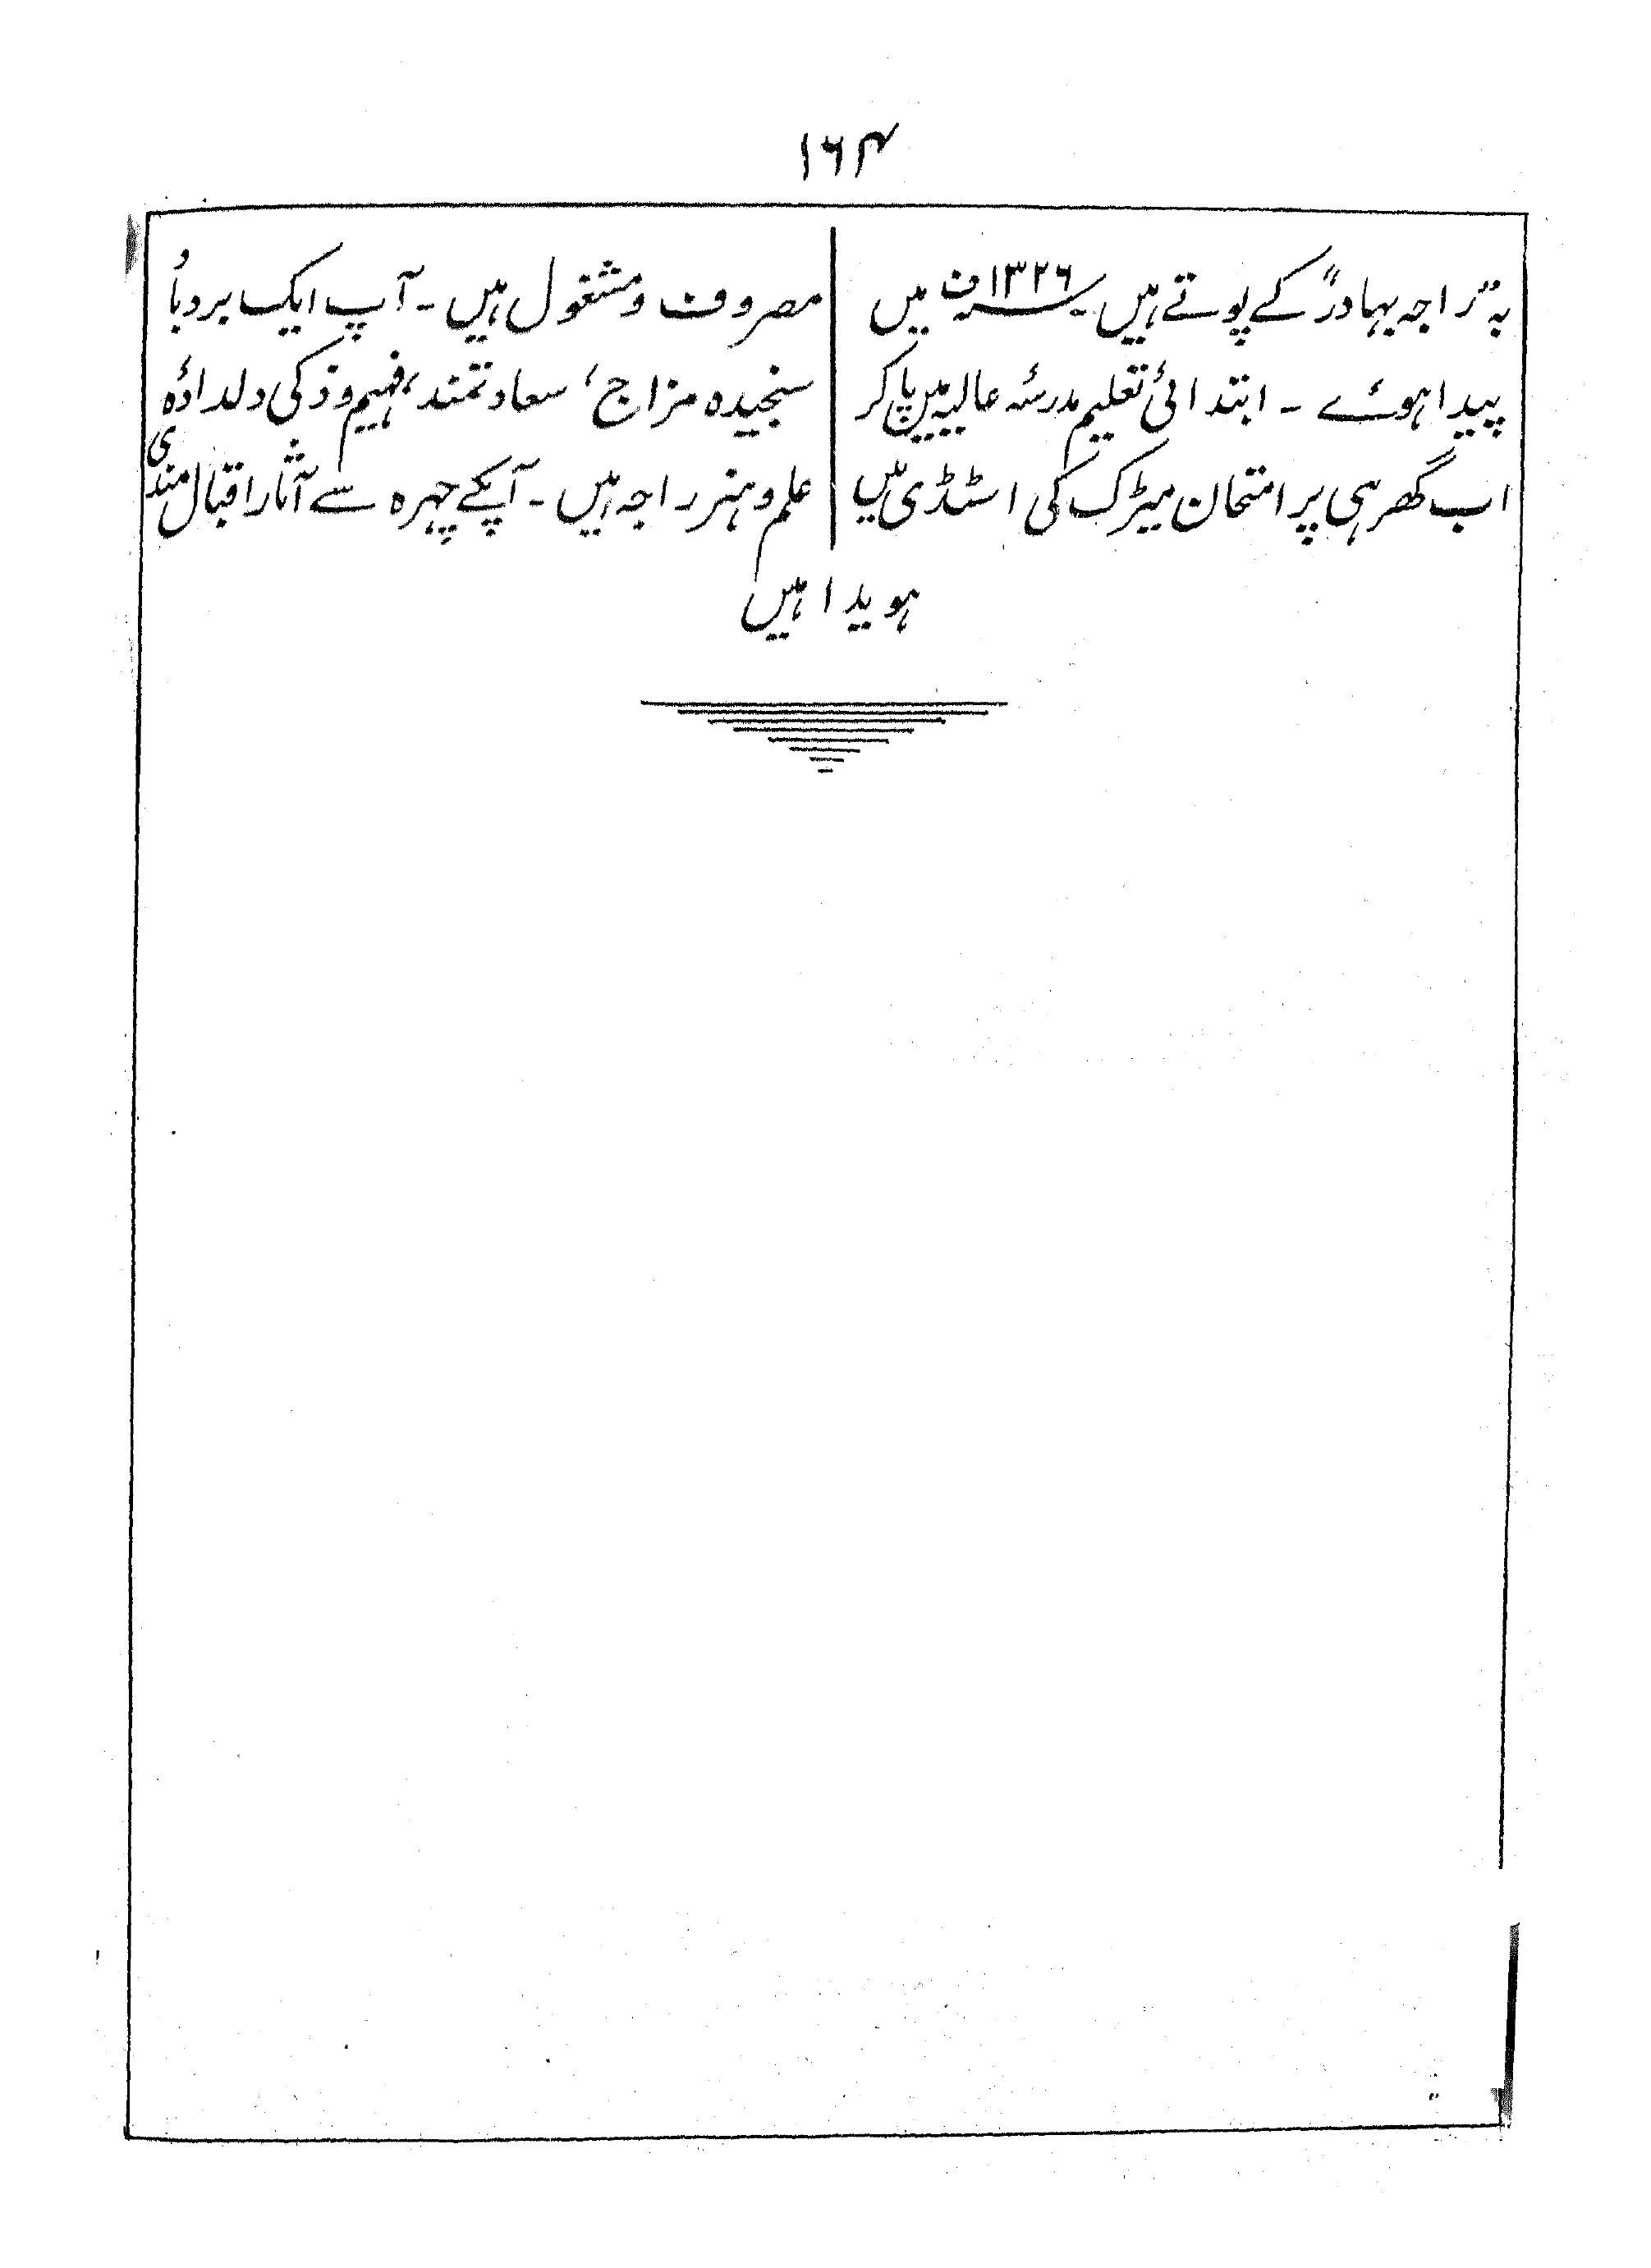 ۱۶۴
بہ "راجہ بہادر" کے پوتے ہیں۔ سنہ ۱۳۲۶ف میں
پیدا ہوئے ۔ ابتدائی تعلیم مدرسۂ عالیہ میں پا کر
اب گھر ہی پر امتحان میٹرک کی اسٹڈی میں
مصروف و مشغول ہیں ۔ آپ ایک بردبار
سنجیدہ مزاج، سعادتمند، فہیم و ذکی دلدادۂ
علم و ہنر راجہ ہیں ۔ آپکے چہرہ سے آثار اقبال مندی
ہویدا ہیں